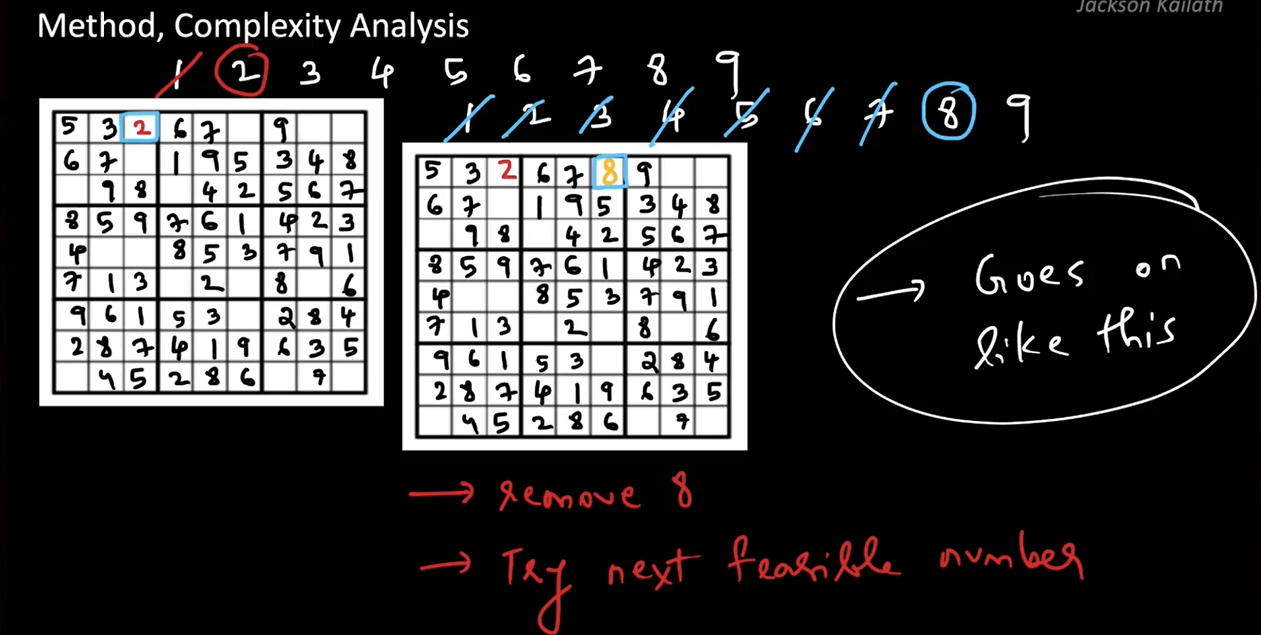 Jackson Kailath
Method, Complexity Analysis
1 2 3 4 5 6 7 8 9
1 2 3 4 5 6 7 8 9
5 3 2 6 7 9
6 7 1 9 5 3 4 8
9 8 4 2 5 6 7
8 5 9 7 6 1 4 2 3
4 8 5 3 7 9 1
7 1 3 2 8 6
9 6 1 5 3 2 8 4
2 8 7 4 1 9 6 3 5
4 5 2 8 6 7
5 3 2 6 7 8 9
6 7 1 9 5 3 4 8
9 8 4 2 5 6 7
8 5 9 7 6 1 4 2 3
4 8 5 3 7 9 1
7 1 3 2 8 6
9 6 1 5 3 2 8 4
2 8 7 4 1 9 6 3 5
4 5 2 8 6 7
→ Goes on
like this
→ remove 8
→ Try next feasible number